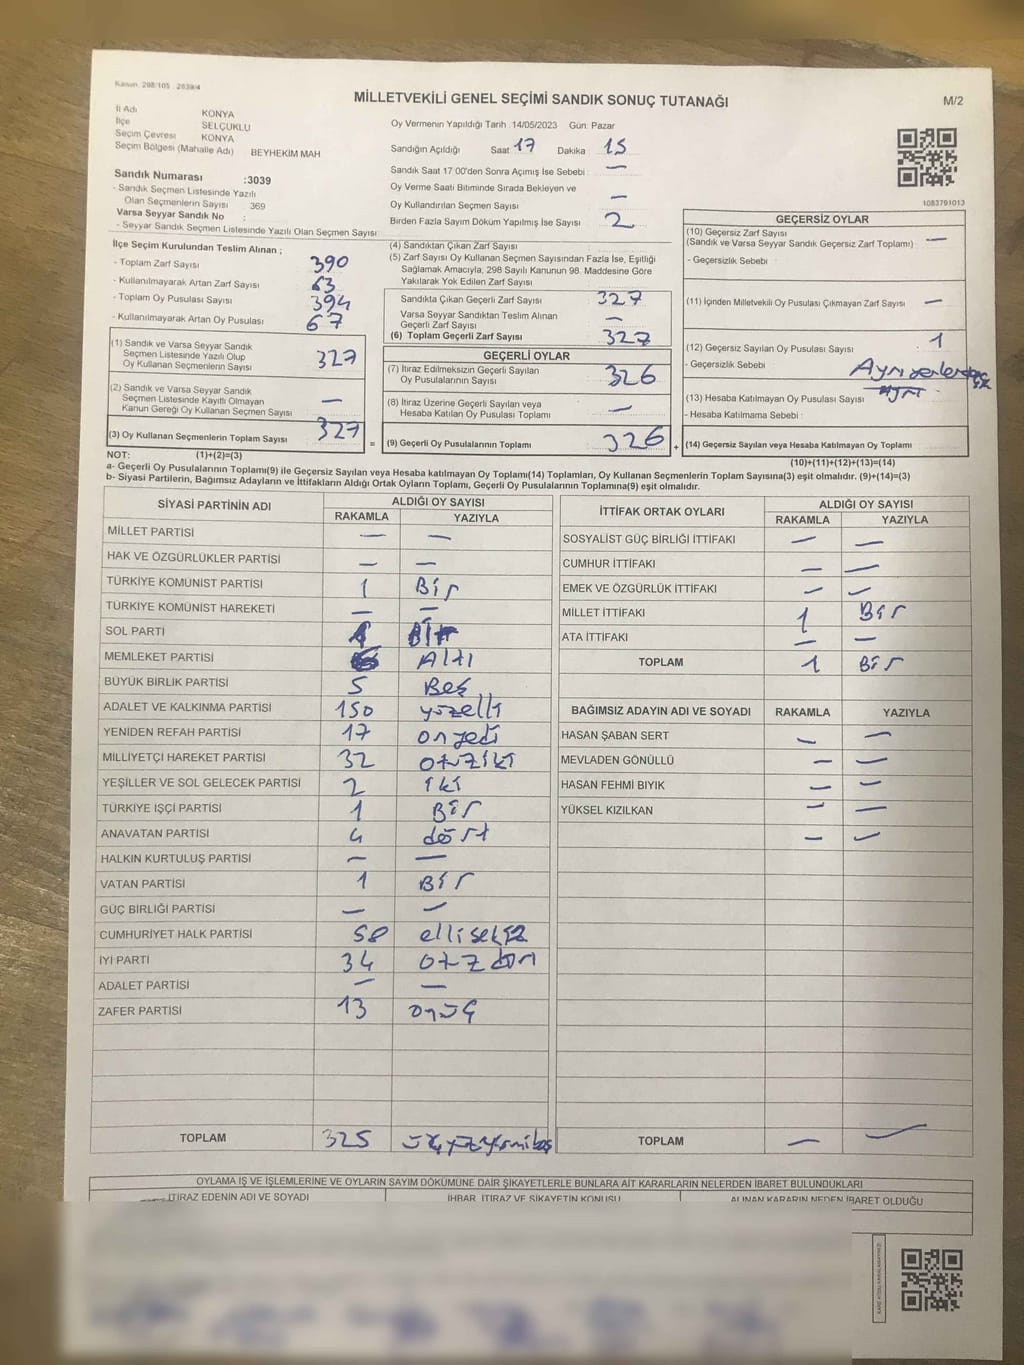 Kanun 298/105 2839/4
MİLLETVEKİLİ GENEL SEÇİMİ SANDIK SONUÇ TUTANAĞI
M/2
İl Adı KONYA
İlçe SELÇUKLU
Seçim Çevresi KONYA
Seçim Bölgesi (Mahalle Adı) BEYHEKİM MAH
Sandık Numarası :3039
- Sandık Seçmen Listesinde Yazılı
Olan Seçmenlerin Sayısı 369
Varsa Seyyar Sandık No :
- Seyyar Sandık Seçmen Listesinde Yazılı Olan Seçmen Sayısı
Oy Vermenin Yapıldığı Tarih 14/05/2023 Gün: Pazar
Sandığın Açıldığı Saat 17 Dakika 15
Sandık Saat 17:00'den Sonra Açımış İse Sebebi : —
Oy Verme Saati Bitiminde Sırada Bekleyen ve
Oy Kullandırılan Seçmen Sayısı —
Birden Fazla Sayım Döküm Yapılmış İse Sayısı 2
1083791013
İlçe Seçim Kurulundan Teslim Alınan ;
- Toplam Zarf Sayısı 390
- Kullanılmayarak Artan Zarf Sayısı 63
- Toplam Oy Pusulası Sayısı 394
- Kullanılmayarak Artan Oy Pusulası 67
(1) Sandık ve Varsa Seyyar Sandık
Seçmen Listesinde Yazılı Olup
Oy Kullanan Seçmenlerin Sayısı 327
(2) Sandık ve Varsa Seyyar Sandık
Seçmen Listesinde Kayıtlı Olmayan
Kanun Gereği Oy Kullanan Seçmen Sayısı —
(3) Oy Kullanan Seçmenlerin Toplam Sayısı 327
(4) Sandıktan Çıkan Zarf Sayısı
(5) Zarf Sayısı Oy Kullanan Seçmen Sayısından Fazla İse, Eşitliği
Sağlamak Amacıyla, 298 Sayılı Kanunun 98. Maddesine Göre
Yakılarak Yok Edilen Zarf Sayısı
Sandıkta Çıkan Geçerli Zarf Sayısı 327
Varsa Seyyar Sandıktan Teslim Alınan
Geçerli Zarf Sayısı —
(6) Toplam Geçerli Zarf Sayısı 327
GEÇERLİ OYLAR
(7) İtiraz Edilmeksizin Geçerli Sayılan
Oy Pusulalarının Sayısı 326
(8) İtiraz Üzerine Geçerli Sayılan veya
Hesaba Katılan Oy Pusulası Toplamı —
= (9) Geçerli Oy Pusulalarının Toplamı 326 +
GEÇERSİZ OYLAR
(10) Geçersiz Zarf Sayısı —
(Sandık ve Varsa Seyyar Sandık Geçersiz Zarf Toplamı)
- Geçersizlik Sebebi :
(11) İçinden Milletvekili Oy Pusulası Çıkmayan Zarf Sayısı —
(12) Geçersiz Sayılan Oy Pusulası Sayısı 1
- Geçersizlik Sebebi :
(13) Hesaba Katılmayan Oy Pusulası Sayısı
- Hesaba Katılmama Sebebi :
(14) Geçersiz Sayılan veya Hesaba Katılmayan Oy Toplamı
NOT: (1)+(2)=(3)
(10)+(11)+(12)+(13)=(14)
a- Geçerli Oy Pusulalarının Toplamı(9) ile Geçersiz Sayılan veya Hesaba katılmayan Oy Toplamı(14) Toplamları, Oy Kullanan Seçmenlerin Toplam Sayısına(3) eşit olmalıdır. (9)+(14)=(3)
b- Siyasi Partilerin, Bağımsız Adayların ve İttifakların Aldığı Ortak Oyların Toplamı, Geçerli Oy Pusulalarının Toplamına(9) eşit olmalıdır.
SİYASİ PARTİNİN ADI ALDIĞI OY SAYISI
RAKAMLA YAZIYLA
MİLLET PARTİSİ — —
HAK VE ÖZGÜRLÜKLER PARTİSİ — —
TÜRKİYE KOMÜNİST PARTİSİ 1 Bir
TÜRKİYE KOMÜNİST HAREKETİ — —
SOL PARTİ 1 Bir
MEMLEKET PARTİSİ 6 Altı
BÜYÜK BİRLİK PARTİSİ 5 Beş
ADALET VE KALKINMA PARTİSİ 150 yüzelli
YENİDEN REFAH PARTİSİ 17 onyedi
MİLLİYETÇİ HAREKET PARTİSİ 32 otuziki
YEŞİLLER VE SOL GELECEK PARTİSİ 2 iki
TÜRKİYE İŞÇİ PARTİSİ 1 Bir
ANAVATAN PARTİSİ 4 dört
HALKIN KURTULUŞ PARTİSİ — —
VATAN PARTİSİ 1 Bir
GÜÇ BİRLİĞİ PARTİSİ — —
CUMHURİYET HALK PARTİSİ 58 ellisekiz
İYİ PARTİ 34 otuzdört
ADALET PARTİSİ — —
ZAFER PARTİSİ 13 onüç
TOPLAM 325 üçyüzyirmibeş
İTTİFAK ORTAK OYLARI ALDIĞI OY SAYISI
RAKAMLA YAZIYLA
SOSYALİST GÜÇ BİRLİĞİ İTTİFAKI — —
CUMHUR İTTİFAKI — —
EMEK VE ÖZGÜRLÜK İTTİFAKI — —
MİLLET İTTİFAKI 1 Bir
ATA İTTİFAKI — —
TOPLAM 1 Bir
BAĞIMSIZ ADAYIN ADI VE SOYADI RAKAMLA YAZIYLA
HASAN ŞABAN SERT — —
MEVLADEN GÖNÜLLÜ — —
HASAN FEHMİ BIYIK — —
YÜKSEL KIZILKAN — —
— —
TOPLAM — —
OYLAMA İŞ VE İŞLEMLERİNE VE OYLARIN SAYIM DÖKÜMÜNE DAİR ŞİKAYETLERLE BUNLARA AİT KARARLARIN NELERDEN İBARET BULUNDUKLARI
İTİRAZ EDENİN ADI VE SOYADI İHBAR, İTİRAZ VE ŞİKAYETİN KONUSU ALINAN KARARIN NEDEN İBARET OLDUĞU